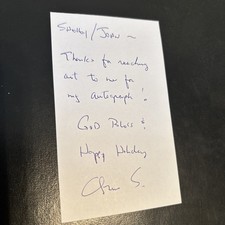 Shannon/John –
Thanks for reaching
out to me for
my autograph!
God Bless &
Happy Holidays